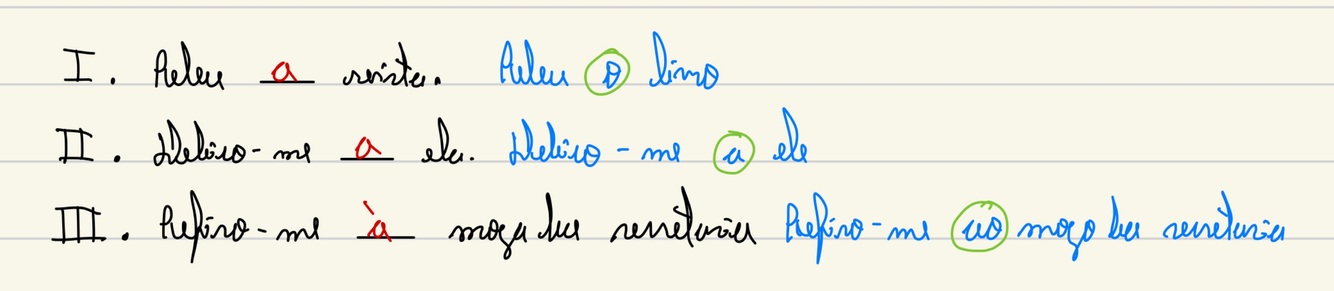 I. Releu a revista. Releu o livro
II. Dedico-me a ela. Dedico-me a ele
III. Refiro-me à moça da secretaria Refiro-me ao moço da secretaria